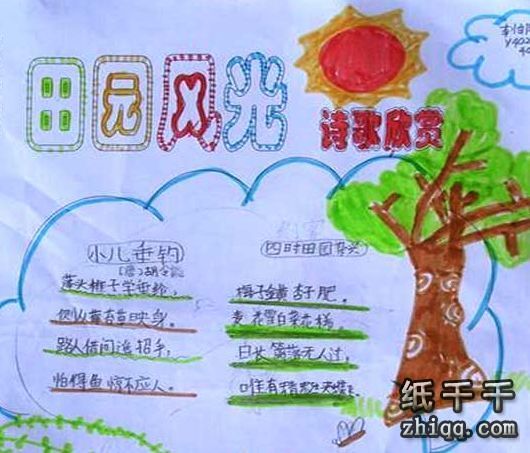 田园风光
诗歌欣赏
Y402
小儿垂钓
(唐)胡令能
蓬头稚子学垂纶,
侧坐莓苔草映身。
路人借问遥招手,
怕得鱼惊不应人。
四时田园杂兴
梅子金黄杏子肥。
麦花雪白菜花稀
日长篱落无人过,
唯有蜻蜓蛱蝶
纸千千
zhiqq.com